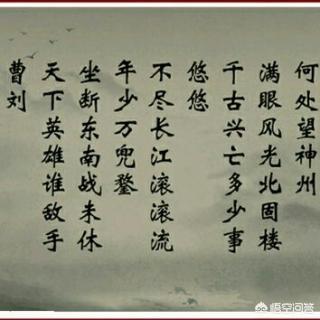 何处望神州
满眼风光北固楼
千古兴亡多少事
悠悠
不尽长江滚滚流
年少万兜鍪
坐断东南战未休
天下英雄谁敌手
曹刘
悟空问答